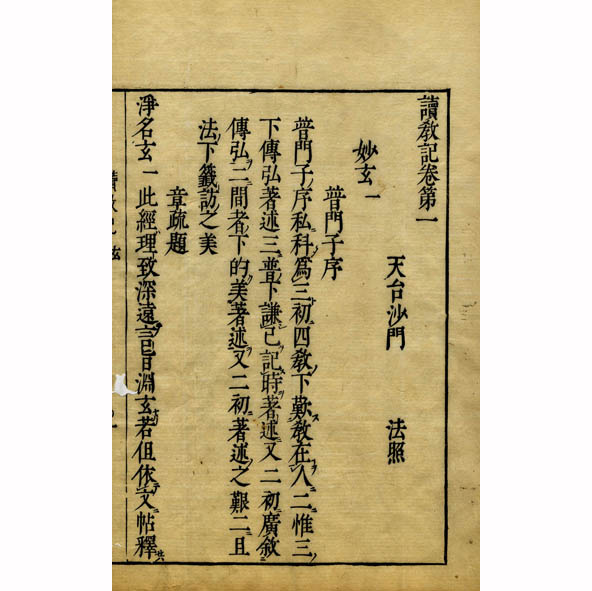 讀教記卷第一
天台沙門　法照
妙玄一
普門子序
普門子序私科爲三初四教下歎教在人二惟三
下傳弘著述三普下謙己記時著述又二初廣敘
傳弘二間者下的美著述又二初著述之艱二且
法下籤訪之美
章疏題
淨名玄一此經理致深遠言旨淵玄若但依文帖釋